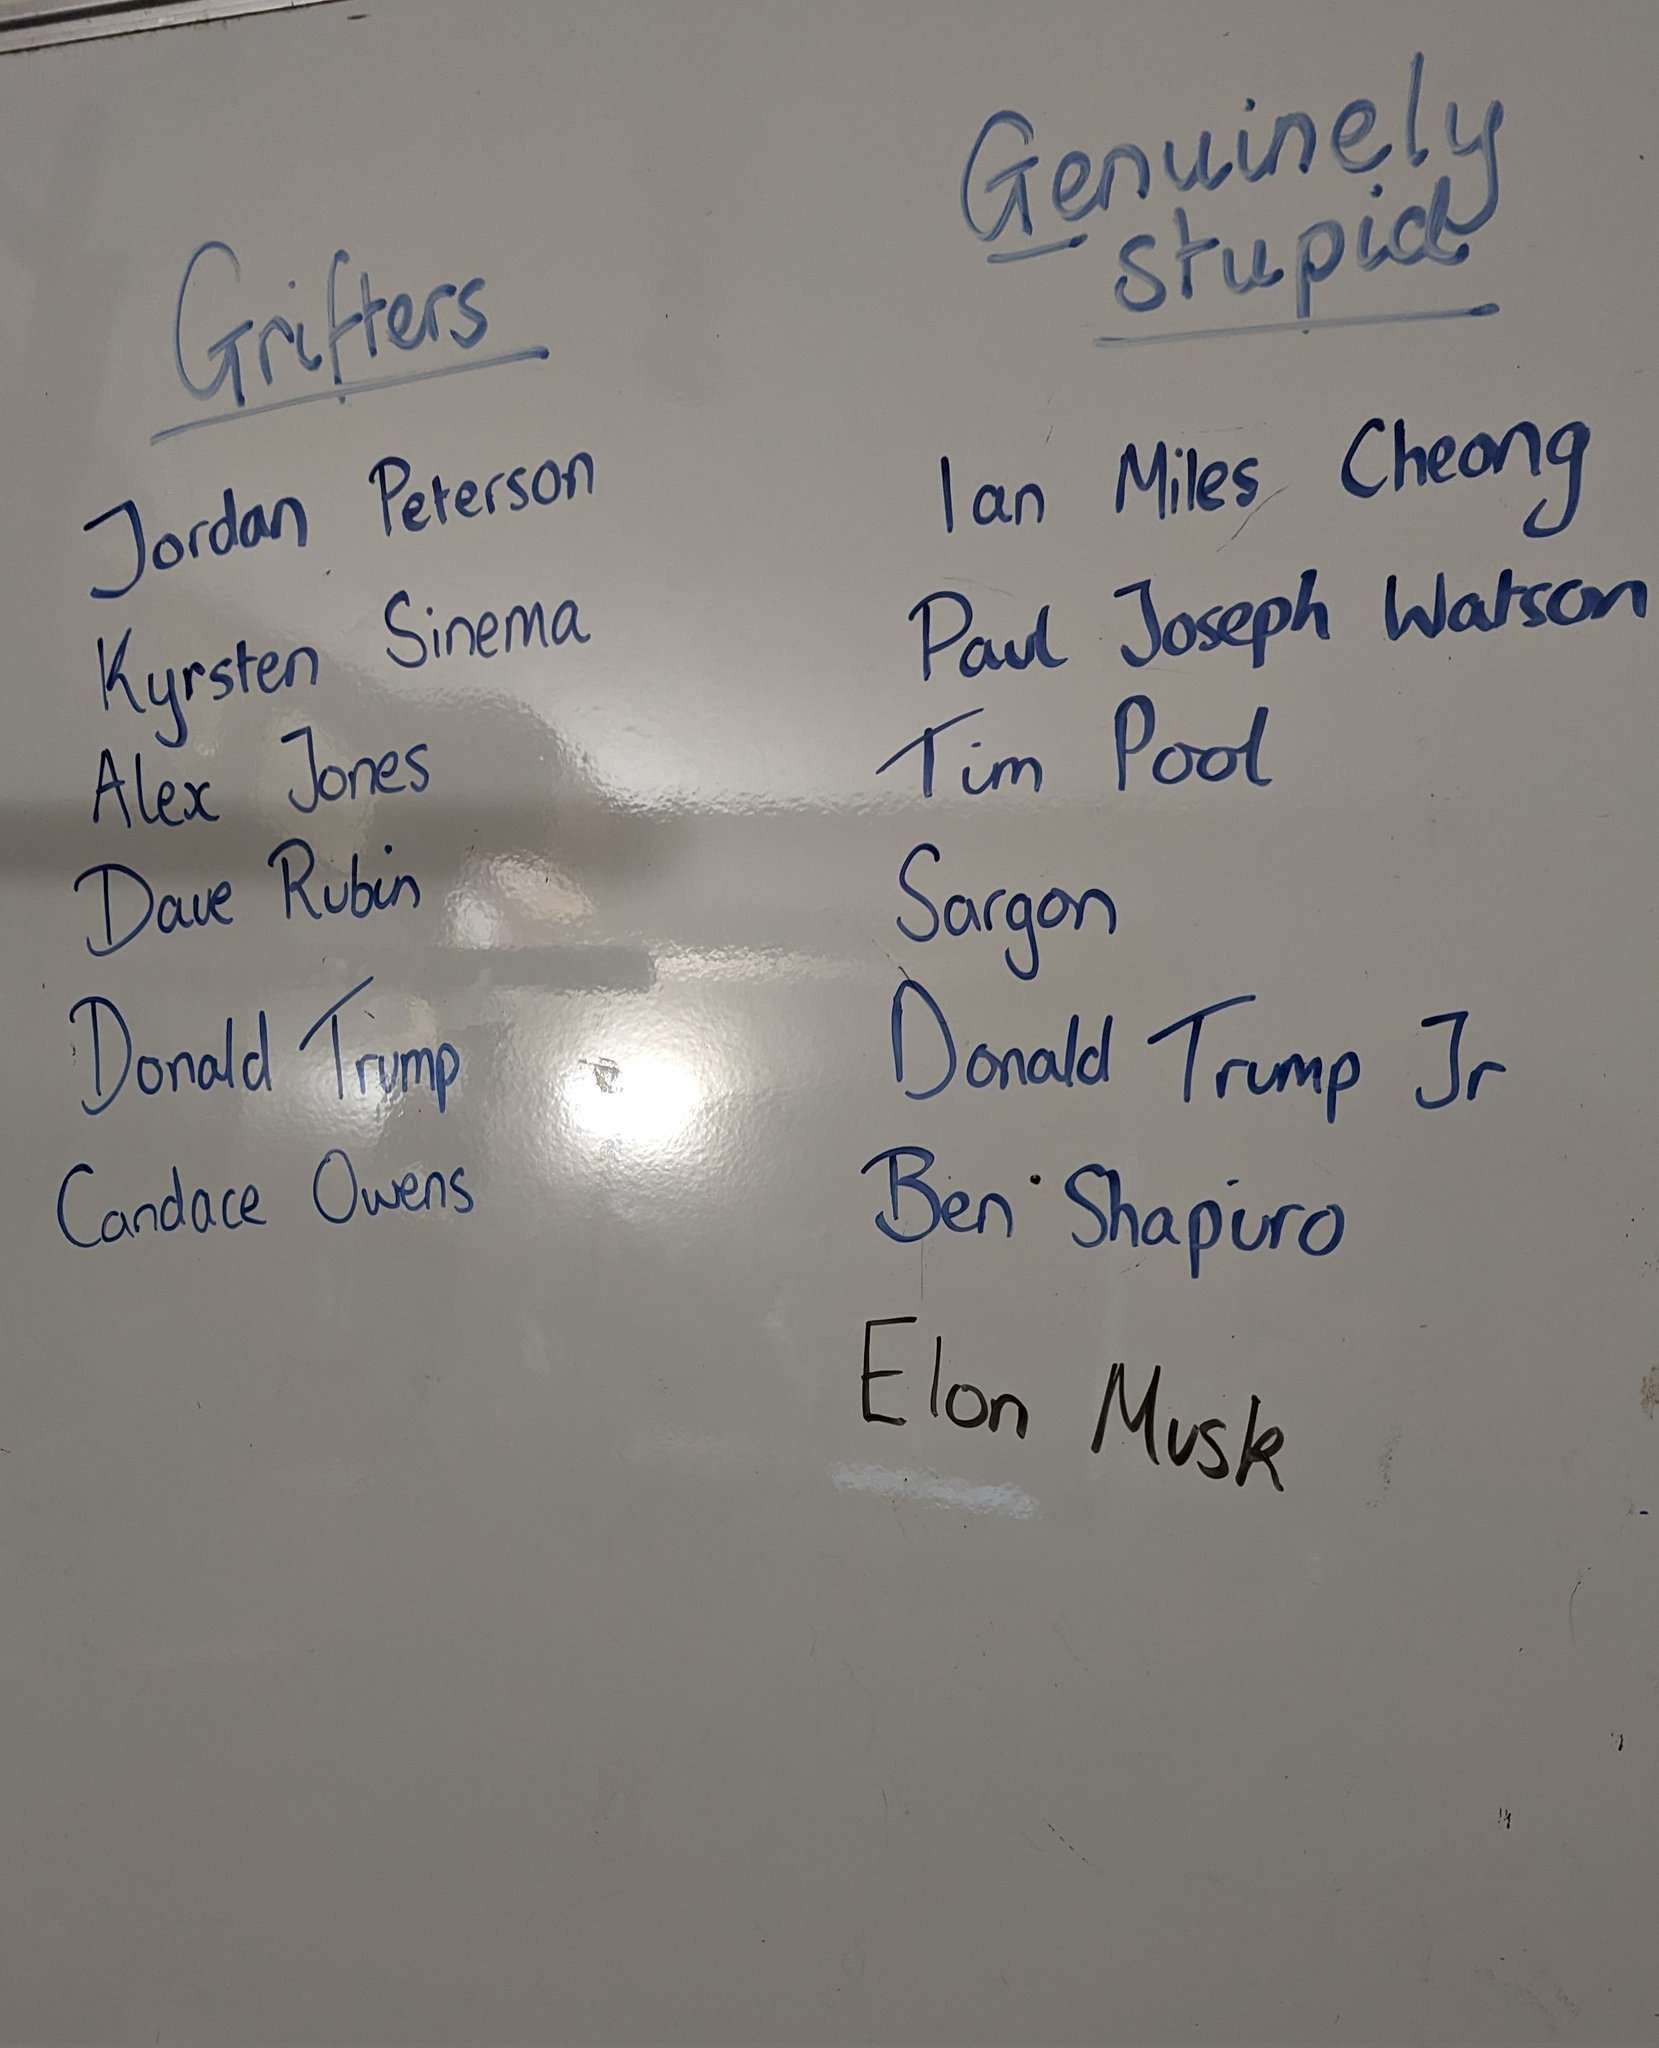 Grifters
Jordan Peterson
Kyrsten Sinema
Alex Jones
Dave Rubin
Donald Trump
Candace Owens
Genuinely
stupid
Ian Miles Cheong
Paul Joseph Watson
Tim Pool
Sargon
Donald Trump Jr
Ben Shapiro
Elon Musk